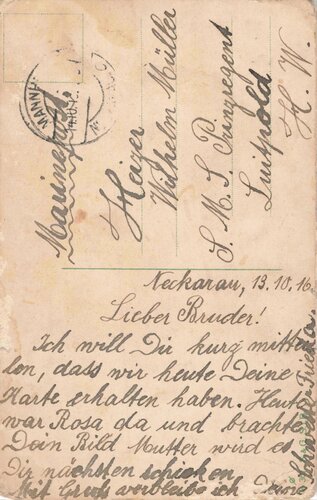 MANNH
Marinepost.
Heizer
Wilhelm Müller
S. M. S. Prinzregent
Luitpold
H. W.
Neckarau, 13.10.16.
Lieber Bruder!
Ich will Dir kurz mittei
len, dass wir heute Deine
Karte erhalten haben. Heute
war Rosa da und brachte
Dein Bild Mutter wird es
Dir nächstens schicken
Mit Gruß verbleibe ich Deine
Schwester Frieda.